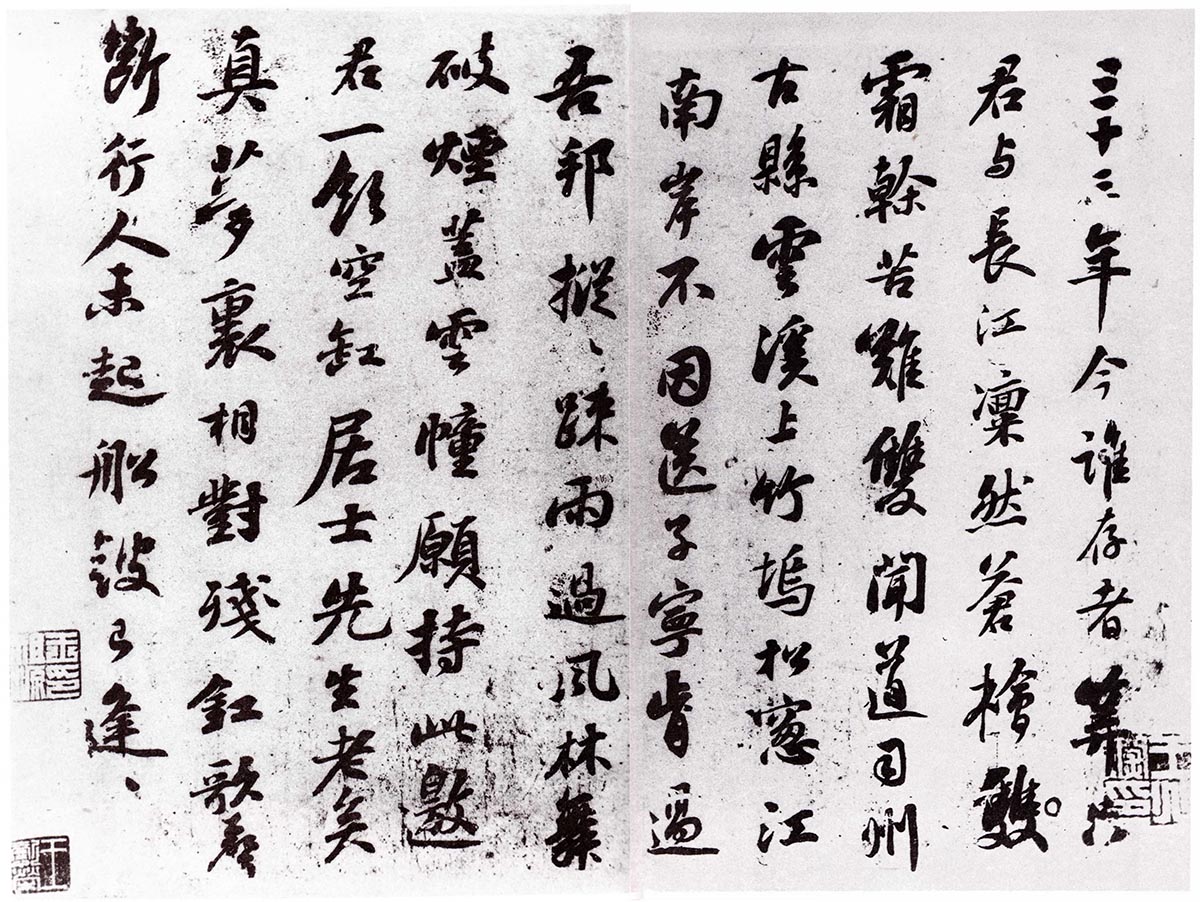 三十三年今誰存者算只
君与長江凛然蒼檜雙
霜榦苦難雙聞道司州
古縣雲溪上竹塢松窓江
南岸不因送子寧肯過
吾邦摐〻疎雨過風林舞
破煙蓋雲幢願持此邀
君一飲空缸居士先生老矣
真夢裏相對殘釭歌聲
斷行人未起船鼓已逢〻